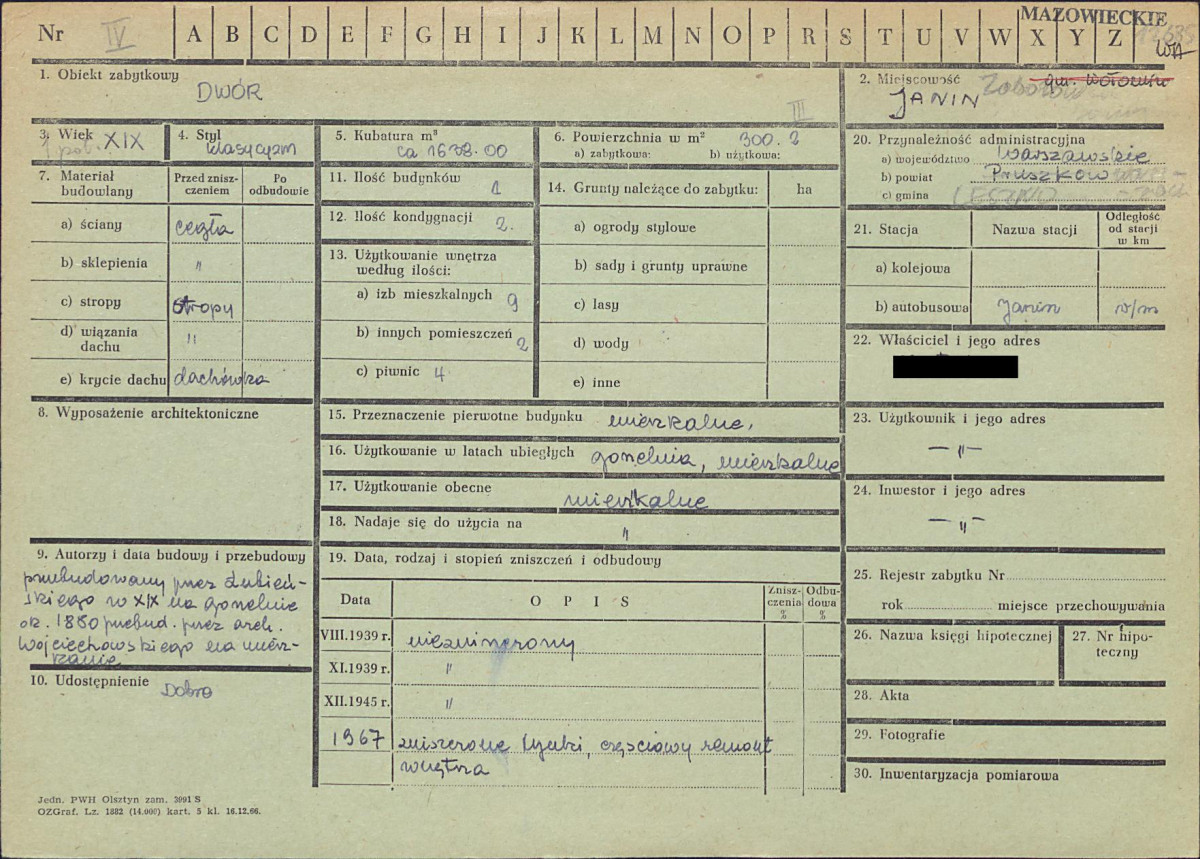 MAZOWIECKIE
Nr IV A B C D E F G H I J K L M N O P R S T U V W X Y Z
WA
1. Obiekt zabytkowy
DWÓR
III
2. Miejscowość gm. Wołomin
JANIN Zaborów
3. Wiek XIX
1 poł.
4. Styl
klasycyzm
5. Kubatura m³
ca 1678.00
6. Powierzchnia w m² 300.2
a) zabytkowa: b) użytkowa:
7. Materiał budowlany
Przed zniszczeniem
Po odbudowie
a) ściany cegła
b) sklepienia "
c) stropy stropy
d) wiązania dachu "
e) krycie dachu dachówka
8. Wyposażenie architektoniczne
9. Autorzy i data budowy i przebudowy
przebudowany przez Łubień-
skiego w XIX na gorzelnię
ok. 1880 przebud. przez arch.
Wojciechowskiego na miesz-
kanie
10. Udostępnienie Dobre
11. Ilość budynków 1
12. Ilość kondygnacji 2.
13. Użytkowanie wnętrza
według ilości:
a) izb mieszkalnych 9
b) innych pomieszczeń 2
c) piwnic 4
14. Grunty należące do zabytku: ha
a) ogrody stylowe
b) sady i grunty uprawne
c) lasy
d) wody
e) inne
15. Przeznaczenie pierwotne budynku mieszkalne.
16. Użytkowanie w latach ubiegłych gorzelnia, mieszkalne
17. Użytkowanie obecne mieszkalne
18. Nadaje się do użycia na "
19. Data, rodzaj i stopień zniszczeń i odbudowy
Data O P I S Zniszczenia % Odbudowa %
VIII.1939 r. niezniszczony
XI.1939 r. "
XII.1945 r. "
1967 zniszczone tynki, częściowy remont
wnętrza
20. Przynależność administracyjna
a) województwo Warszawskie
b) powiat Pruszków
c) gmina LESZNO
21. Stacja Nazwa stacji Odległość od stacji w km
a) kolejowa
b) autobusowa Janin v/m
22. Właściciel i jego adres
23. Użytkownik i jego adres
—"—
24. Inwestor i jego adres
—"—
25. Rejestr zabytku Nr
rok miejsce przechowywania
26. Nazwa księgi hipotecznej
27. Nr hipoteczny
28. Akta
29. Fotografie
30. Inwentaryzacja pomiarowa
Jedn. PWH Olsztyn zam. 3991 S
OZGraf. Lz. 1882 (14.000) kart. 5 kl. 16.12.66.